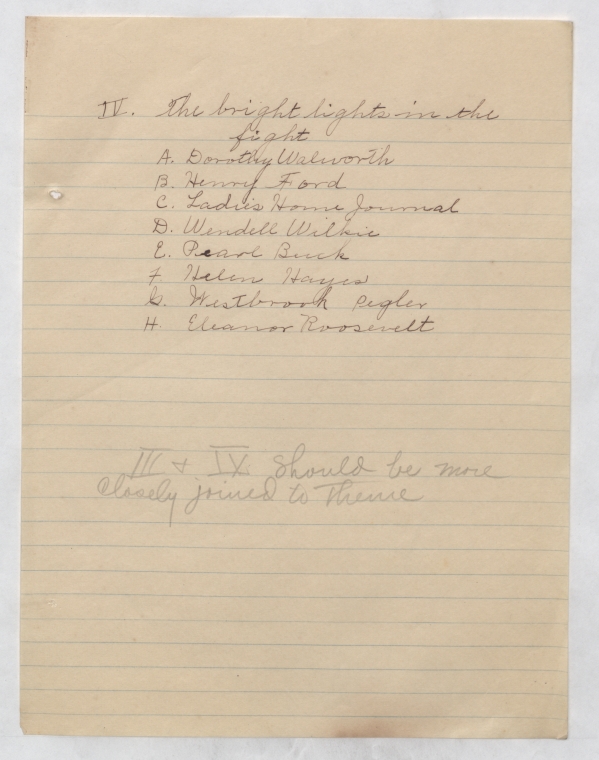 IV. The bright lights in the
fight
A. Dorothy Walworth
B. Henry Ford
C. Ladies Home Journal
D. Wendell Wilkie
E. Pearl Buck
F Helen Hayes
G. Westbrook Pegler
H. Eleanor Roosevelt
III & IV should be more
closely joined to Theme